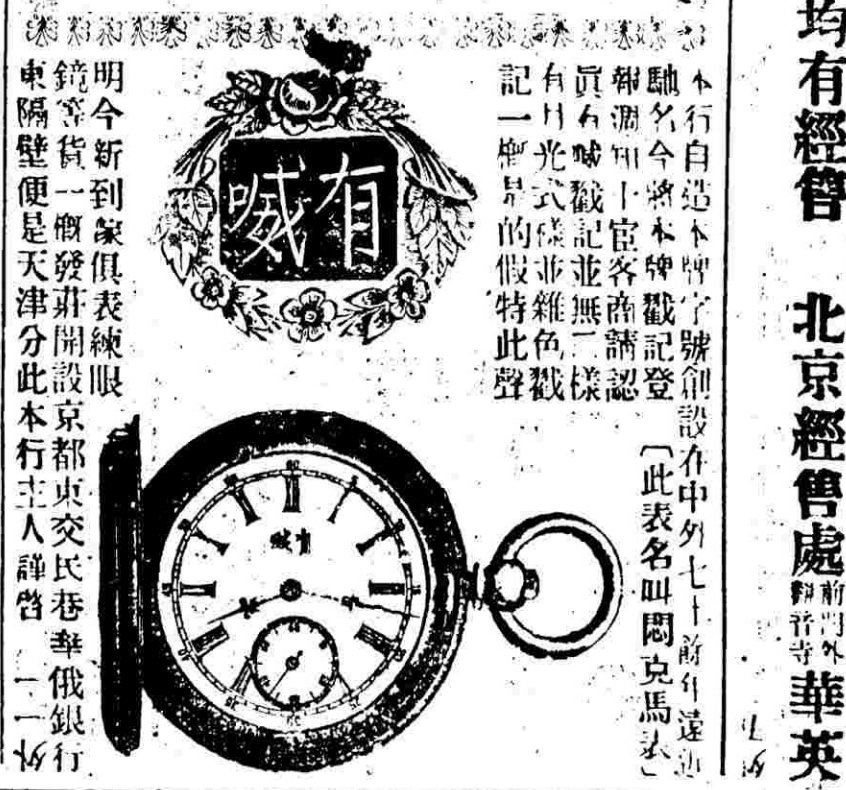 均有經售 北京經售處 前門外 觀音寺 華英
本行自造本牌字號創設在中外七十前年遠近
馳名今將本牌戳記登
報週知士宦客商請認
眞有喊戳記並無二樣
有日光式樣並雜色戳
記一概是的假特此聲
〔此表名叫悶克馬表〕
有喊
有喊
明今新到傢俱表練眼
鏡等貨一概發莊開設京都東交民巷華俄銀行
東隔壁便是天津分此本行主人謹啓